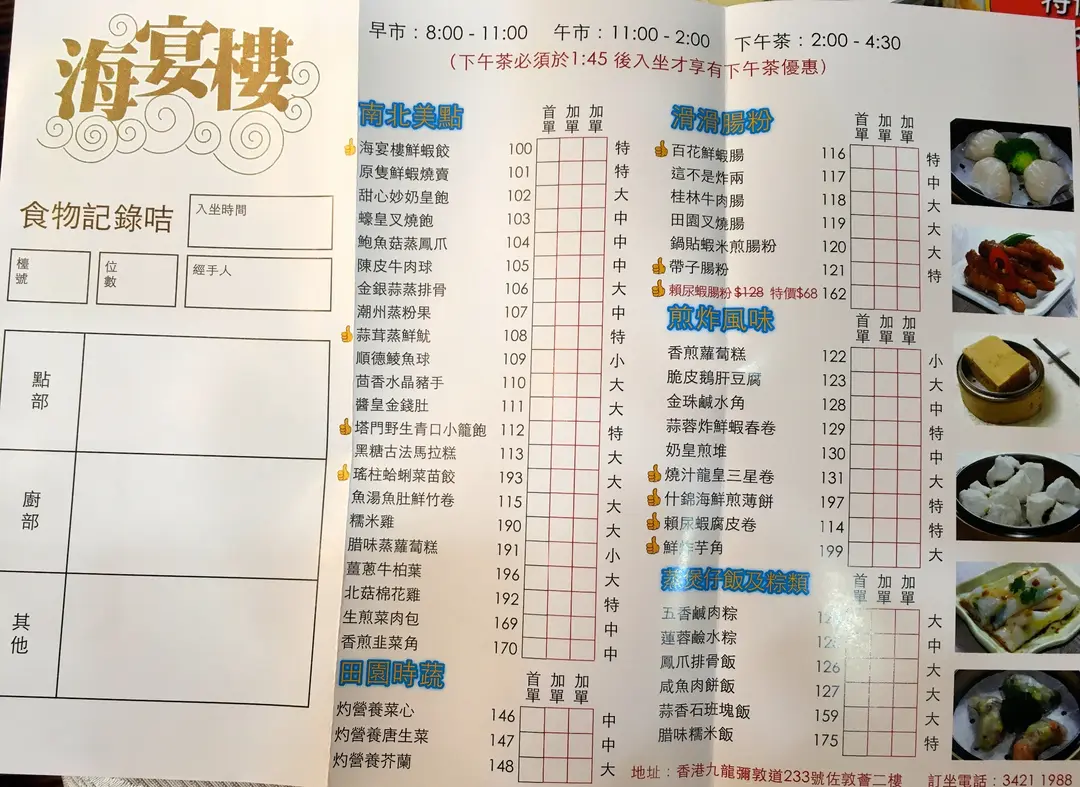 海宴樓
食物記錄咭
入坐時間
檯號
位數
經手人
點部
廚部
其他
早市：8:00 - 11:00 午市：11:00 - 2:00 下午茶：2:00 - 4:30
（下午茶必須於1:45 後入坐才享有下午茶優惠）
南北美點 首單 加單 加單
海宴樓鮮蝦餃 100 特
原隻鮮蝦燒賣 101 特
甜心妙奶皇飽 102 大
蠔皇叉燒飽 103 中
鮑魚菇蒸鳳爪 104 中
陳皮牛肉球 105 中
金銀蒜蒸排骨 106 大
潮州蒸粉果 107 中
蒜茸蒸鮮魷 108 特
順德鯪魚球 109 小
茴香水晶豬手 110 大
醬皇金錢肚 111 大
塔門野生青口小籠飽 112 特
黑糖古法馬拉糕 113 大
瑤柱蛤蜊菜苗餃 193 大
魚湯魚肚鮮竹卷 115 大
糯米雞 190 大
腊味蒸蘿蔔糕 191 小
薑蔥牛柏葉 196 大
北菇棉花雞 192 特
生煎菜肉包 169 中
香煎韭菜角 170 中
田園時蔬 首單 加單 加單
灼營養菜心 146 中
灼營養唐生菜 147 中
灼營養芥蘭 148 大
滑滑腸粉 首單 加單 加單
百花鮮蝦腸 116 特
這不是炸兩 117 中
桂林牛肉腸 118 大
田園叉燒腸 119 大
鍋貼蝦米煎腸粉 120 大
帶子腸粉 121 特
賴尿蝦腸粉 $128 特價$68 162
煎炸風味 首單 加單 加單
香煎蘿蔔糕 122 小
脆皮鵝肝豆腐 123 大
金珠鹹水角 128 中
蒜蓉炸鮮蝦春卷 129 特
奶皇煎堆 130 中
燒汁龍皇三星卷 131 大
什錦海鮮煎薄餅 197 特
賴尿蝦腐皮卷 114 特
鮮炸芋角 199 大
蒸煲仔飯及粽類 首單 加單 加單
五香鹹肉粽 大
蓮蓉鹼水粽 中
鳳爪排骨飯 126 大
咸魚肉餅飯 127 大
蒜香石班塊飯 159 大
腊味糯米飯 175 特
地址：香港九龍彌敦道233號佐敦薈二樓 訂坐電話：3421 1988